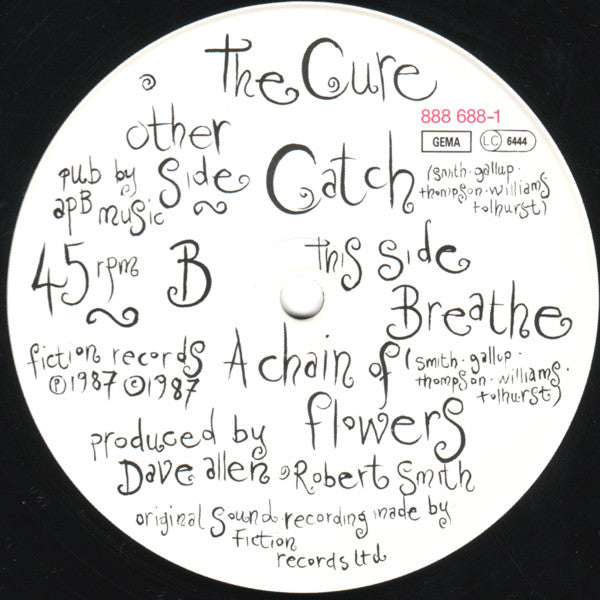 The Cure
888 688-1
GEMA LC 6444
other
side Catch
pub by
apB music
(smith·gallup·
thompson·williams
tolhurst)
45rpm B
this side
Breathe
fiction records
℗1987 ©1987
A chain of
flowers
(smith·gallup·
thompson·williams·
tolhurst)
produced by
Dave allen · Robert Smith
original sound recording made by
Fiction
records ltd